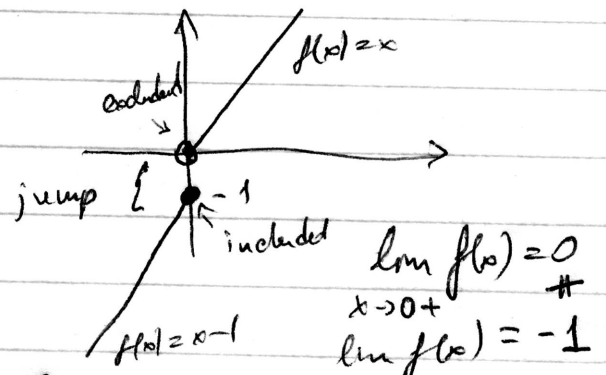 f(x) = x
excluded
jump {
-1
included
lim f(x) = 0
x→0+
≠
f(x) = x-1
lim f(x) = -1